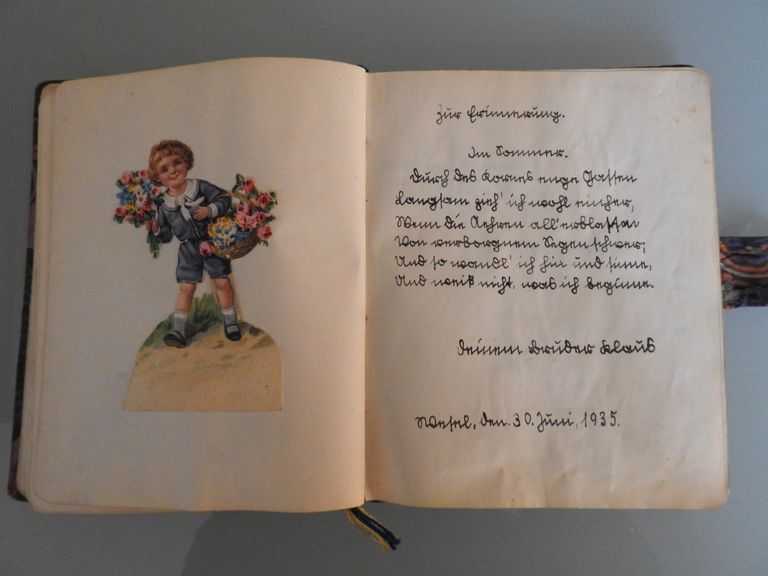 Zur Erinnerung.
Im Sommer.
Durch des Kornes enge Gassen
Langsam zieh' ich wohl einher,
Wenn die Aehren all' erblassen
Von verborgnem Segen schwer;
Und so wandl' ich hin und sinne,
Und weiß nicht, was ich beginne.
Deinem Bruder Klaus
Wesel, den 30. Juni, 1935.